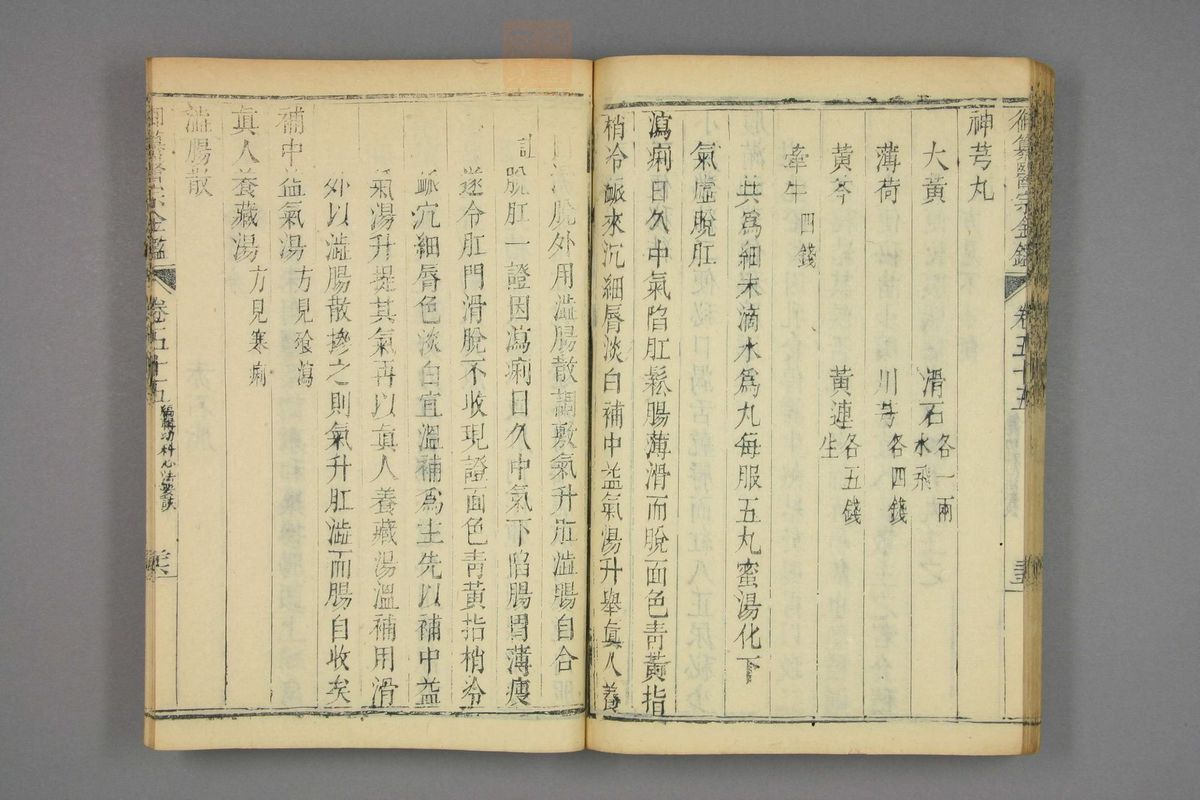 御纂醫宗金鑑 卷五十五
神芎丸
大黃 滑石水飛各一兩
薄荷 川芎各四錢
黃芩 黃連生各五錢
牽牛四錢
共為細末滴水為丸每服五丸蜜湯化下
氣虛脫肛
瀉痢日久中氣陷肛鬆腸薄滑而脫面色靑黃指
梢冷脈來沉細唇淡白補中益氣湯升舉眞人養
脫外用澁腸散調敷氣升肛澁腸自合
註 脫肛一證因瀉痢日久中氣下陷腸胃薄瘦
遂令肛門滑脫不收現證面色靑黃指梢冷
脈沉細唇色淡白宜溫補爲主先以補中益
氣湯升提其氣再以眞人養藏湯溫補用滑
外以澁腸散摻之則氣升肛澁而腸自收矣
補中益氣湯方見飧瀉
眞人養藏湯方見寒痢
澁腸散
御纂醫宗金鑑 卷五十五 編輯幼科心法要訣